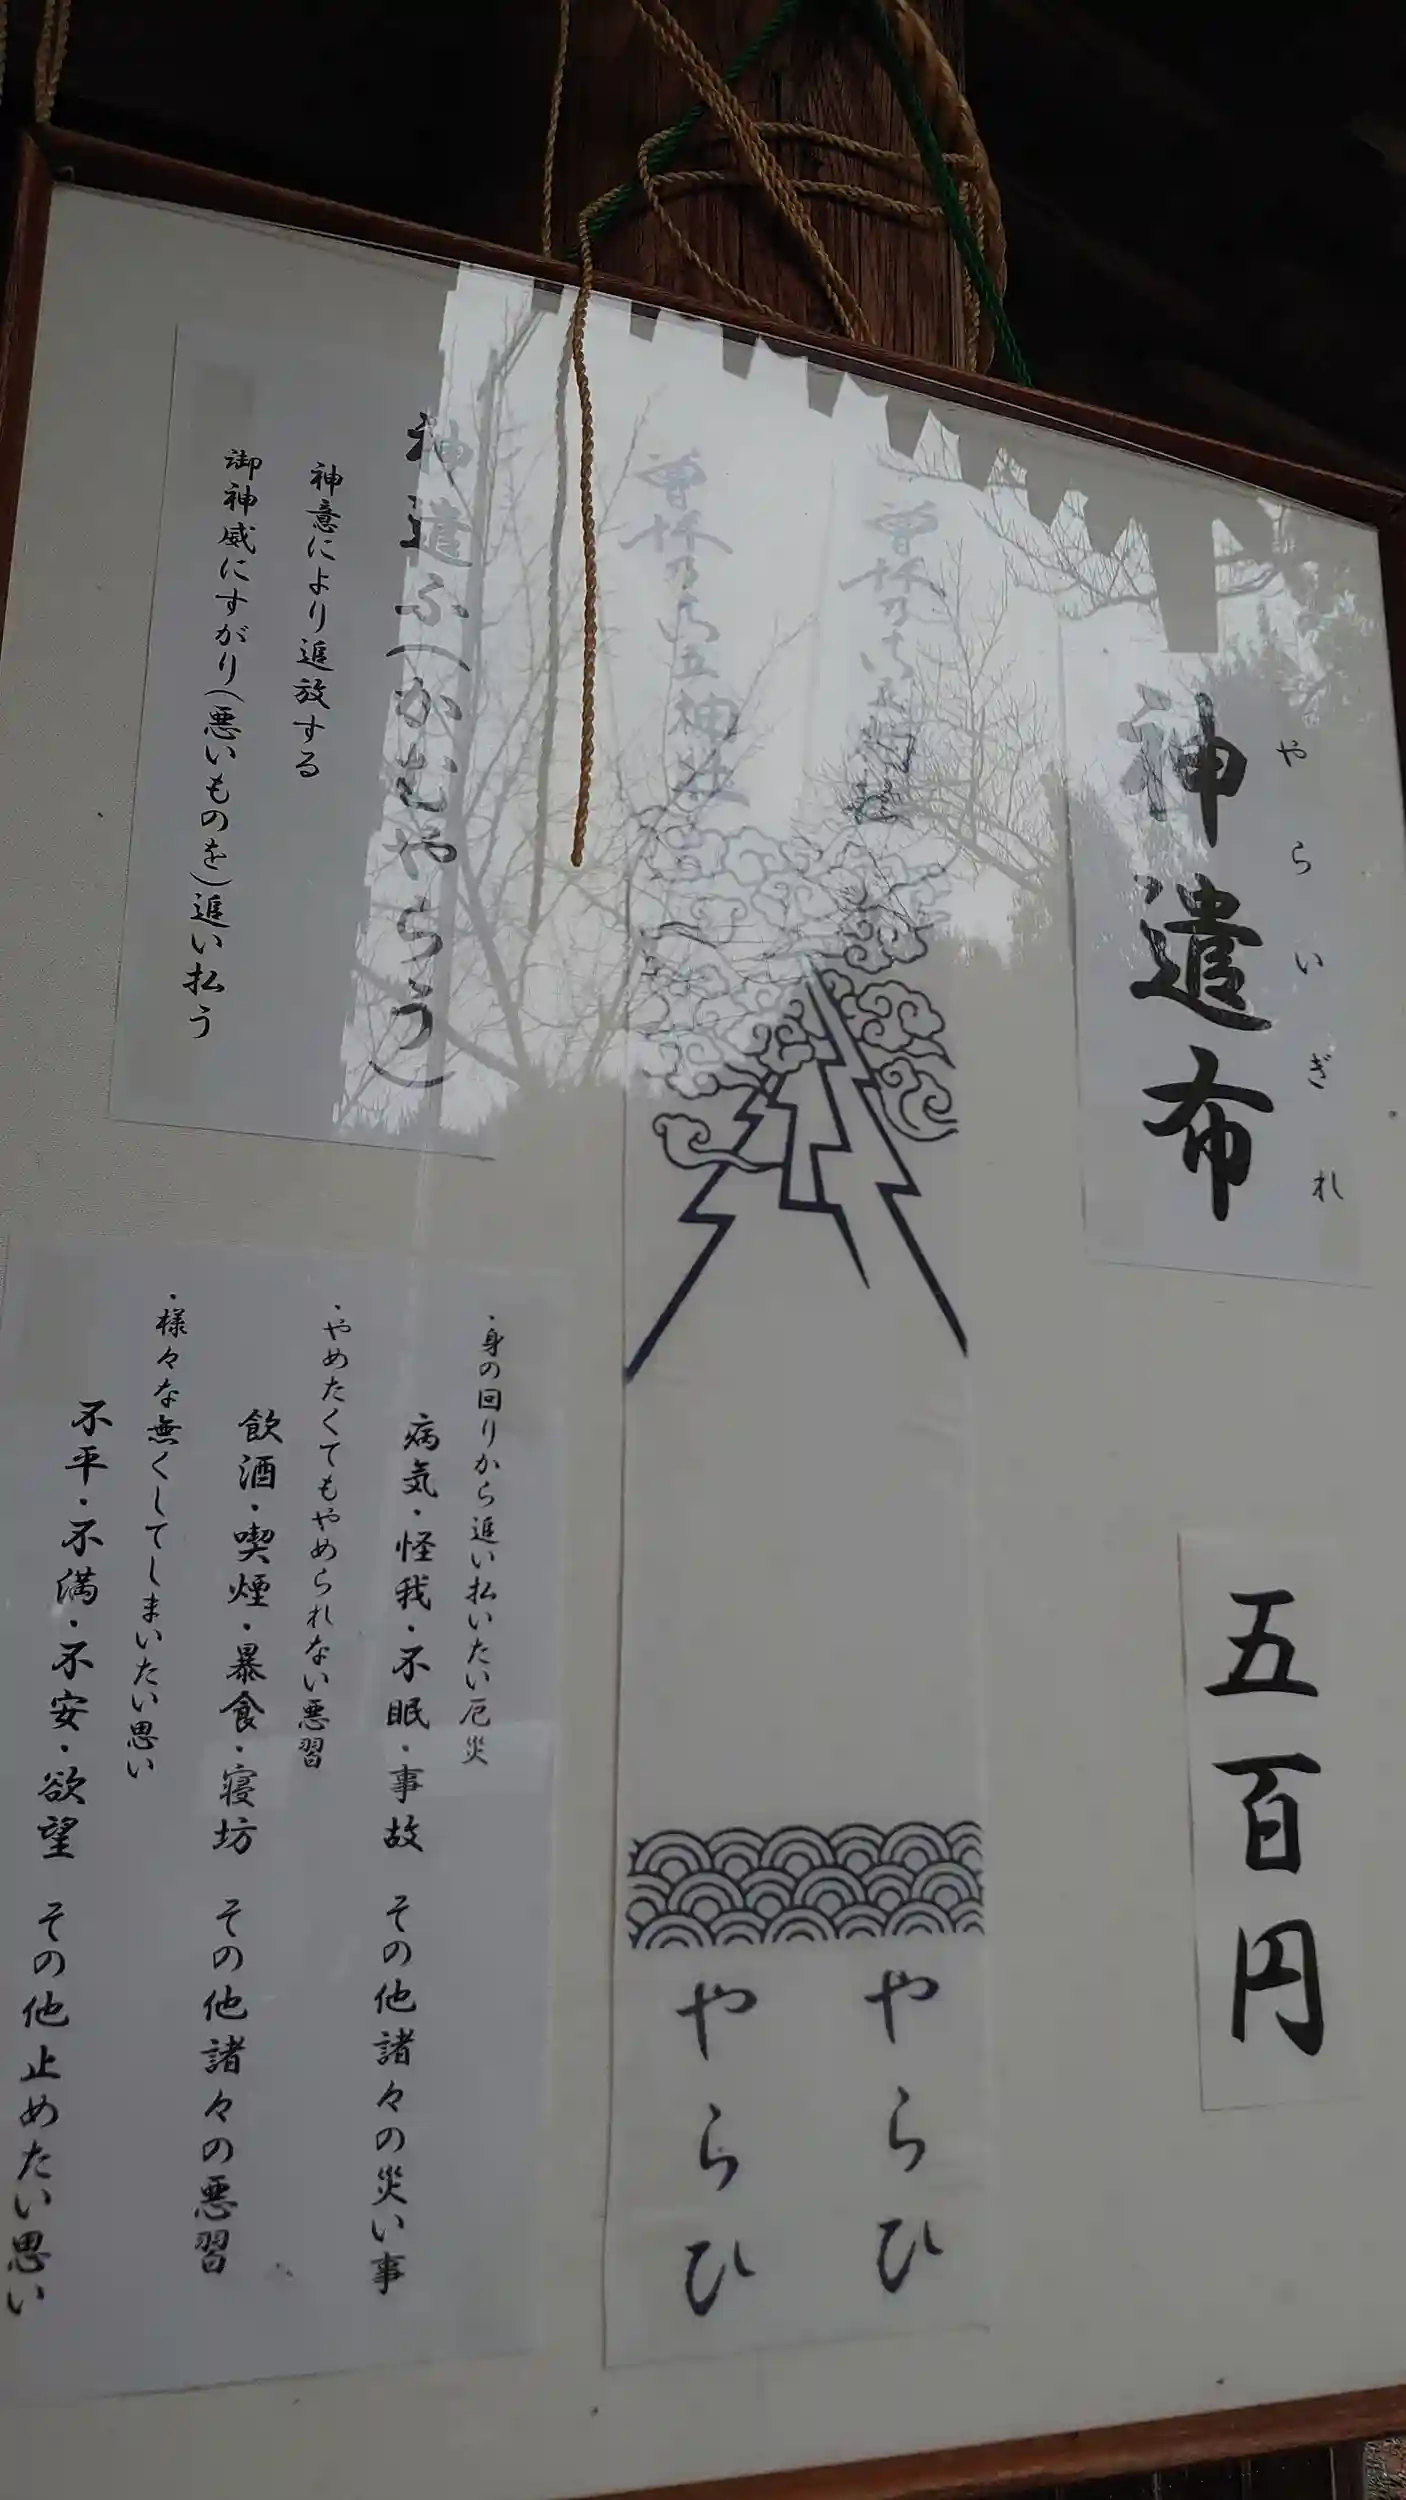 やらいぎれ
神遣布
五百円
やらひ
やらひ
神遣ふ(かむやらう)
神意により追放する
御神威にすがり(悪いものを)追い払う
・身の回りから追い払いたい厄災
病気・怪我・不眠・事故 その他諸々の災い事
・やめたくてもやめられない悪習
飲酒・喫煙・暴食・寝坊 その他諸々の悪習
・様々な無くしてしまいたい思い
不平・不満・不安・欲望 その他止めたい思い